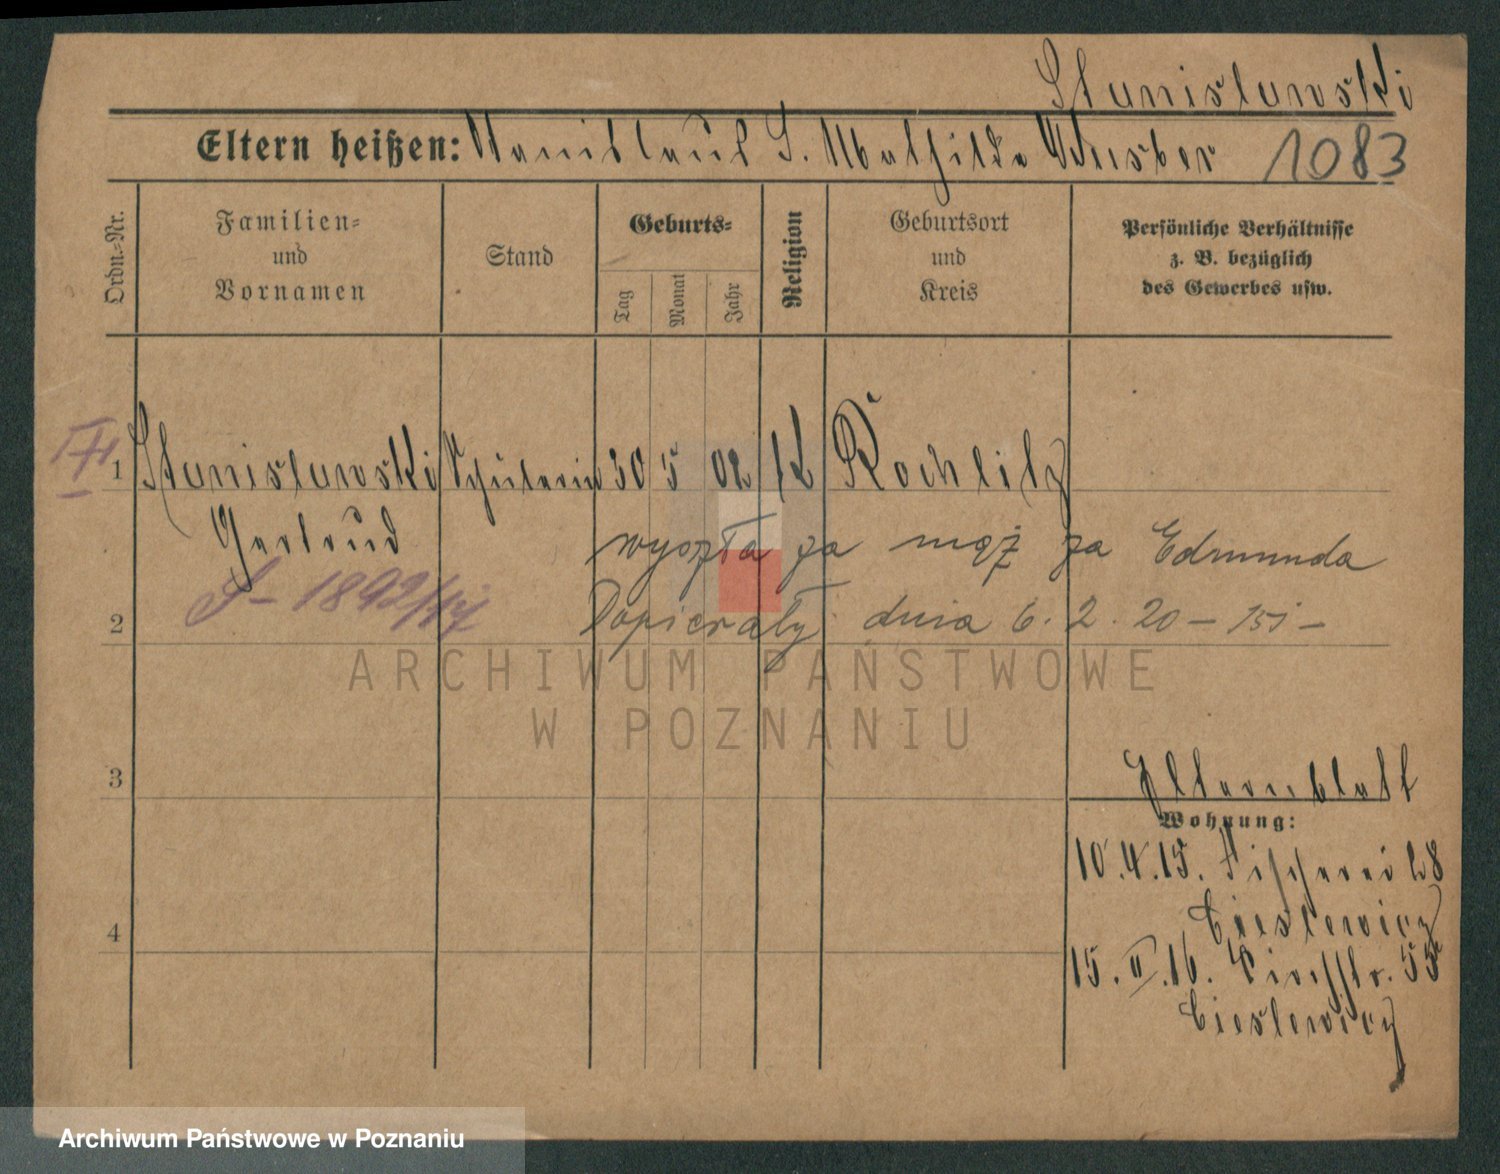 Stanislawski
Eltern heißen: Stanislaus S. Mathilde Weber 1083
Ordn.=Nr.
Familien=
und
Vornamen
Stand
Geburts=
Tag
Monat
Jahr
Religion
Geburtsort
und
Kreis
Persönliche Verhältnisse
z. B. bezüglich
des Gewerbes usw.
1 Stanislawski Schülerin 30 5 02 k Rochlitz
Gertrud
wyszła za mąż za Edmunda
2 Dopierały dnia 6. 2. 20
3
Elternblatt
Wohnung:
10.4.15. Fischerei 28
Cieslewicz
4
15.II.16. 55
Cieslewicz
ARCHIWUM PAŃSTWOWE
W POZNANIU
Archiwum Państwowe w Poznaniu